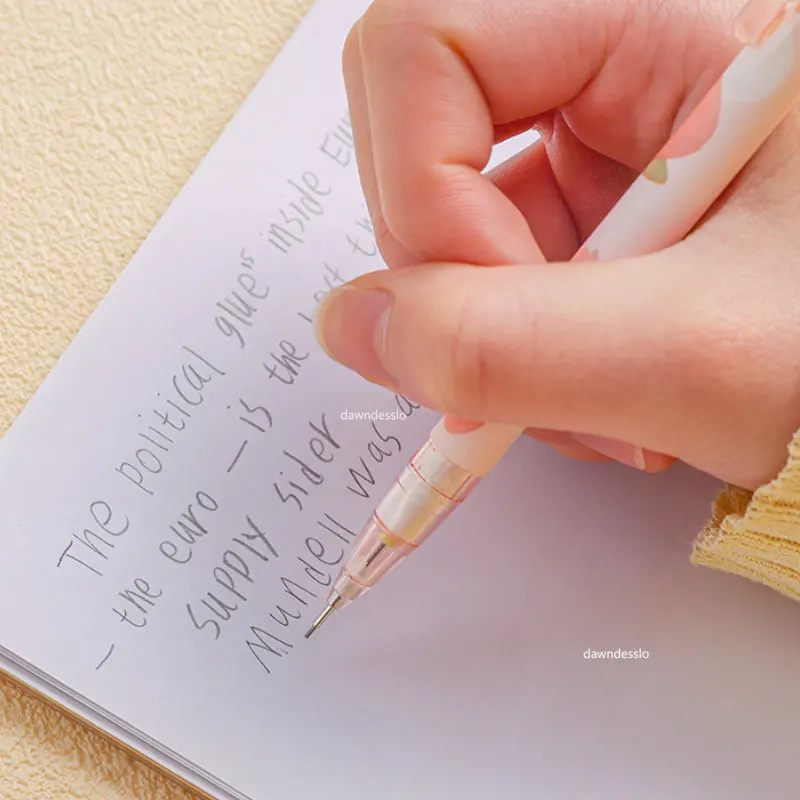 The political glue" inside Eur
– the euro – is the last th
supply sider
Mundell was a
dawndesslo
dawndesslo